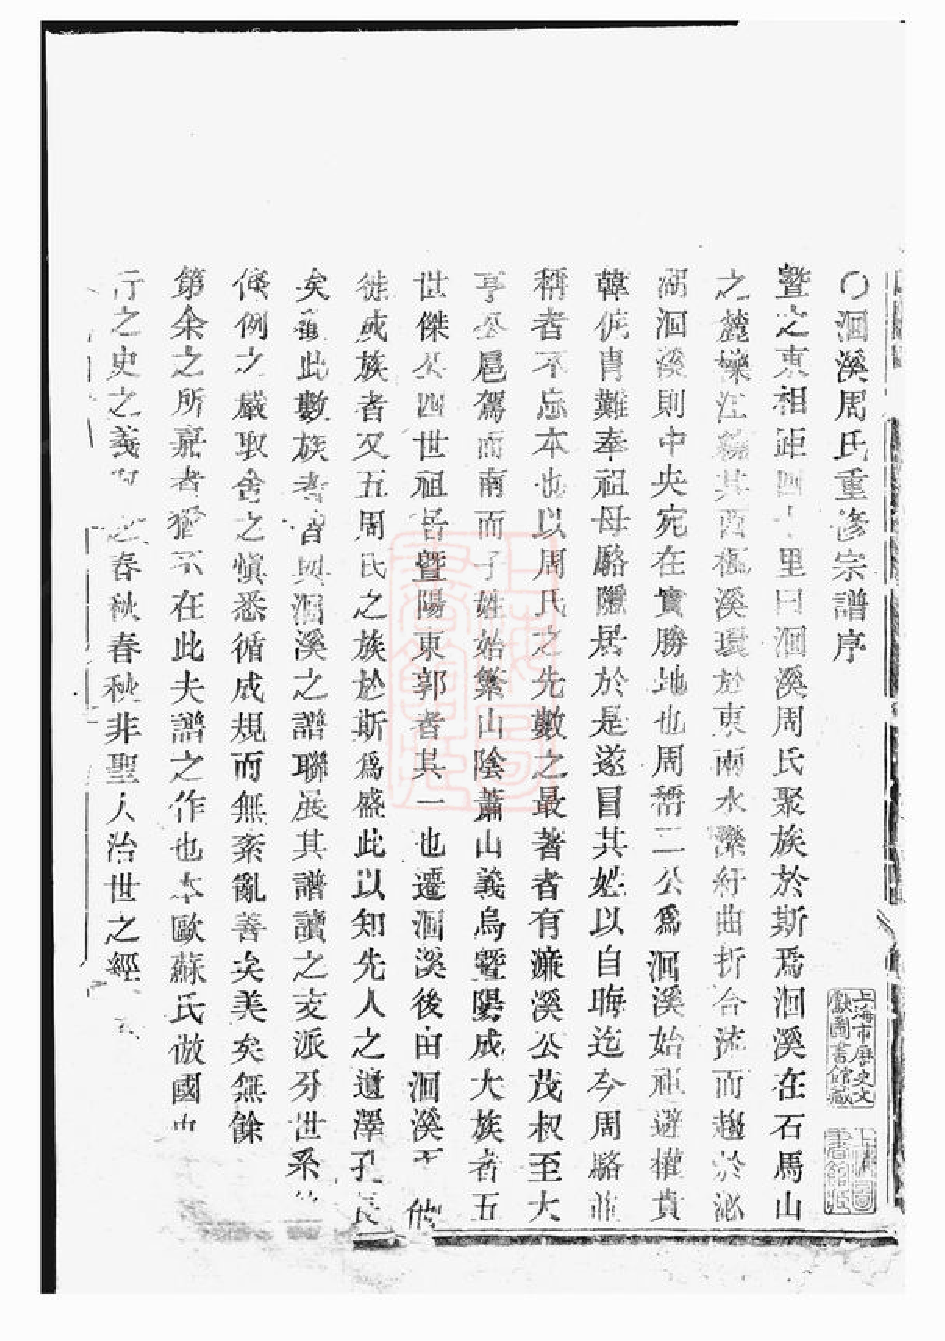 〇洄溪周氏重修宗譜序
暨之東相距四十里曰洄溪周氏聚族於斯焉洄溪在石馬山
之麓櫟江繞其西楓溪環於東兩水瀠紆曲折合流而趨於泌
湖洄溪則中央宛在實勝地也周稱二公爲洄溪始祖避權貴
韓侂冑難奉祖母駱隱居於是遂冒其姓以自晦迄今周駱並
稱者不忘本也以周氏之先數之最著者有濂溪公茂叔至大
亨公扈駕而南而子姓始繁山陰蕭山義烏暨陽成大族者五
世傑公四世祖居暨陽東郭者其一也遷洄溪後由洄溪而他
徙成族者又五周氏之族於斯爲盛此以知先人之遺澤孔長
矣顧此數族者皆與洄溪之譜聯展其譜讀之支派分世系
條例之嚴取舍之慎悉循成規而無紊亂善矣美矣無餘
第余之所嘉者猶不在此夫譜之作也本歐蘇氏倣國史
行之史之義 之春秋春秋非聖人治世之經
上海市歷史文獻圖書館藏